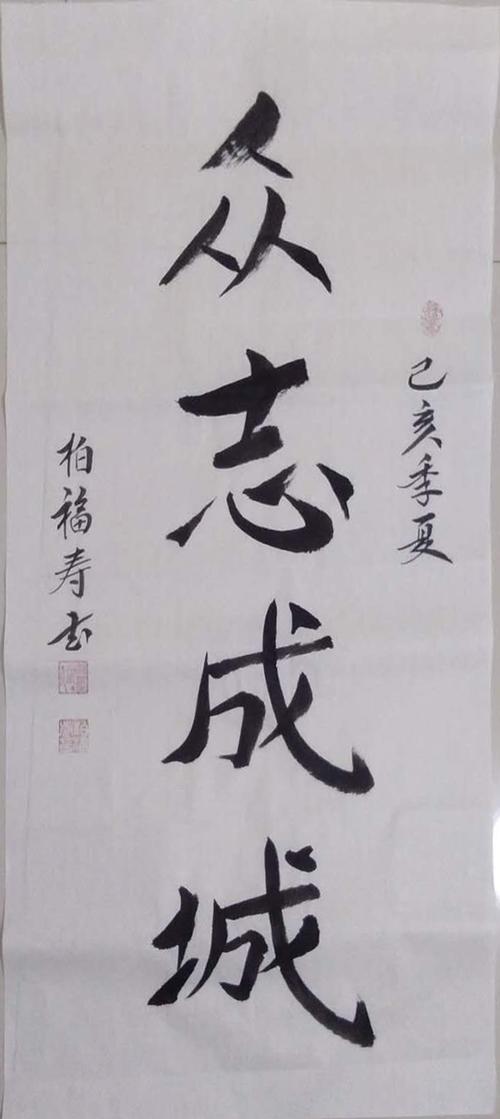 己亥季夏
众志成城
柏福寿书